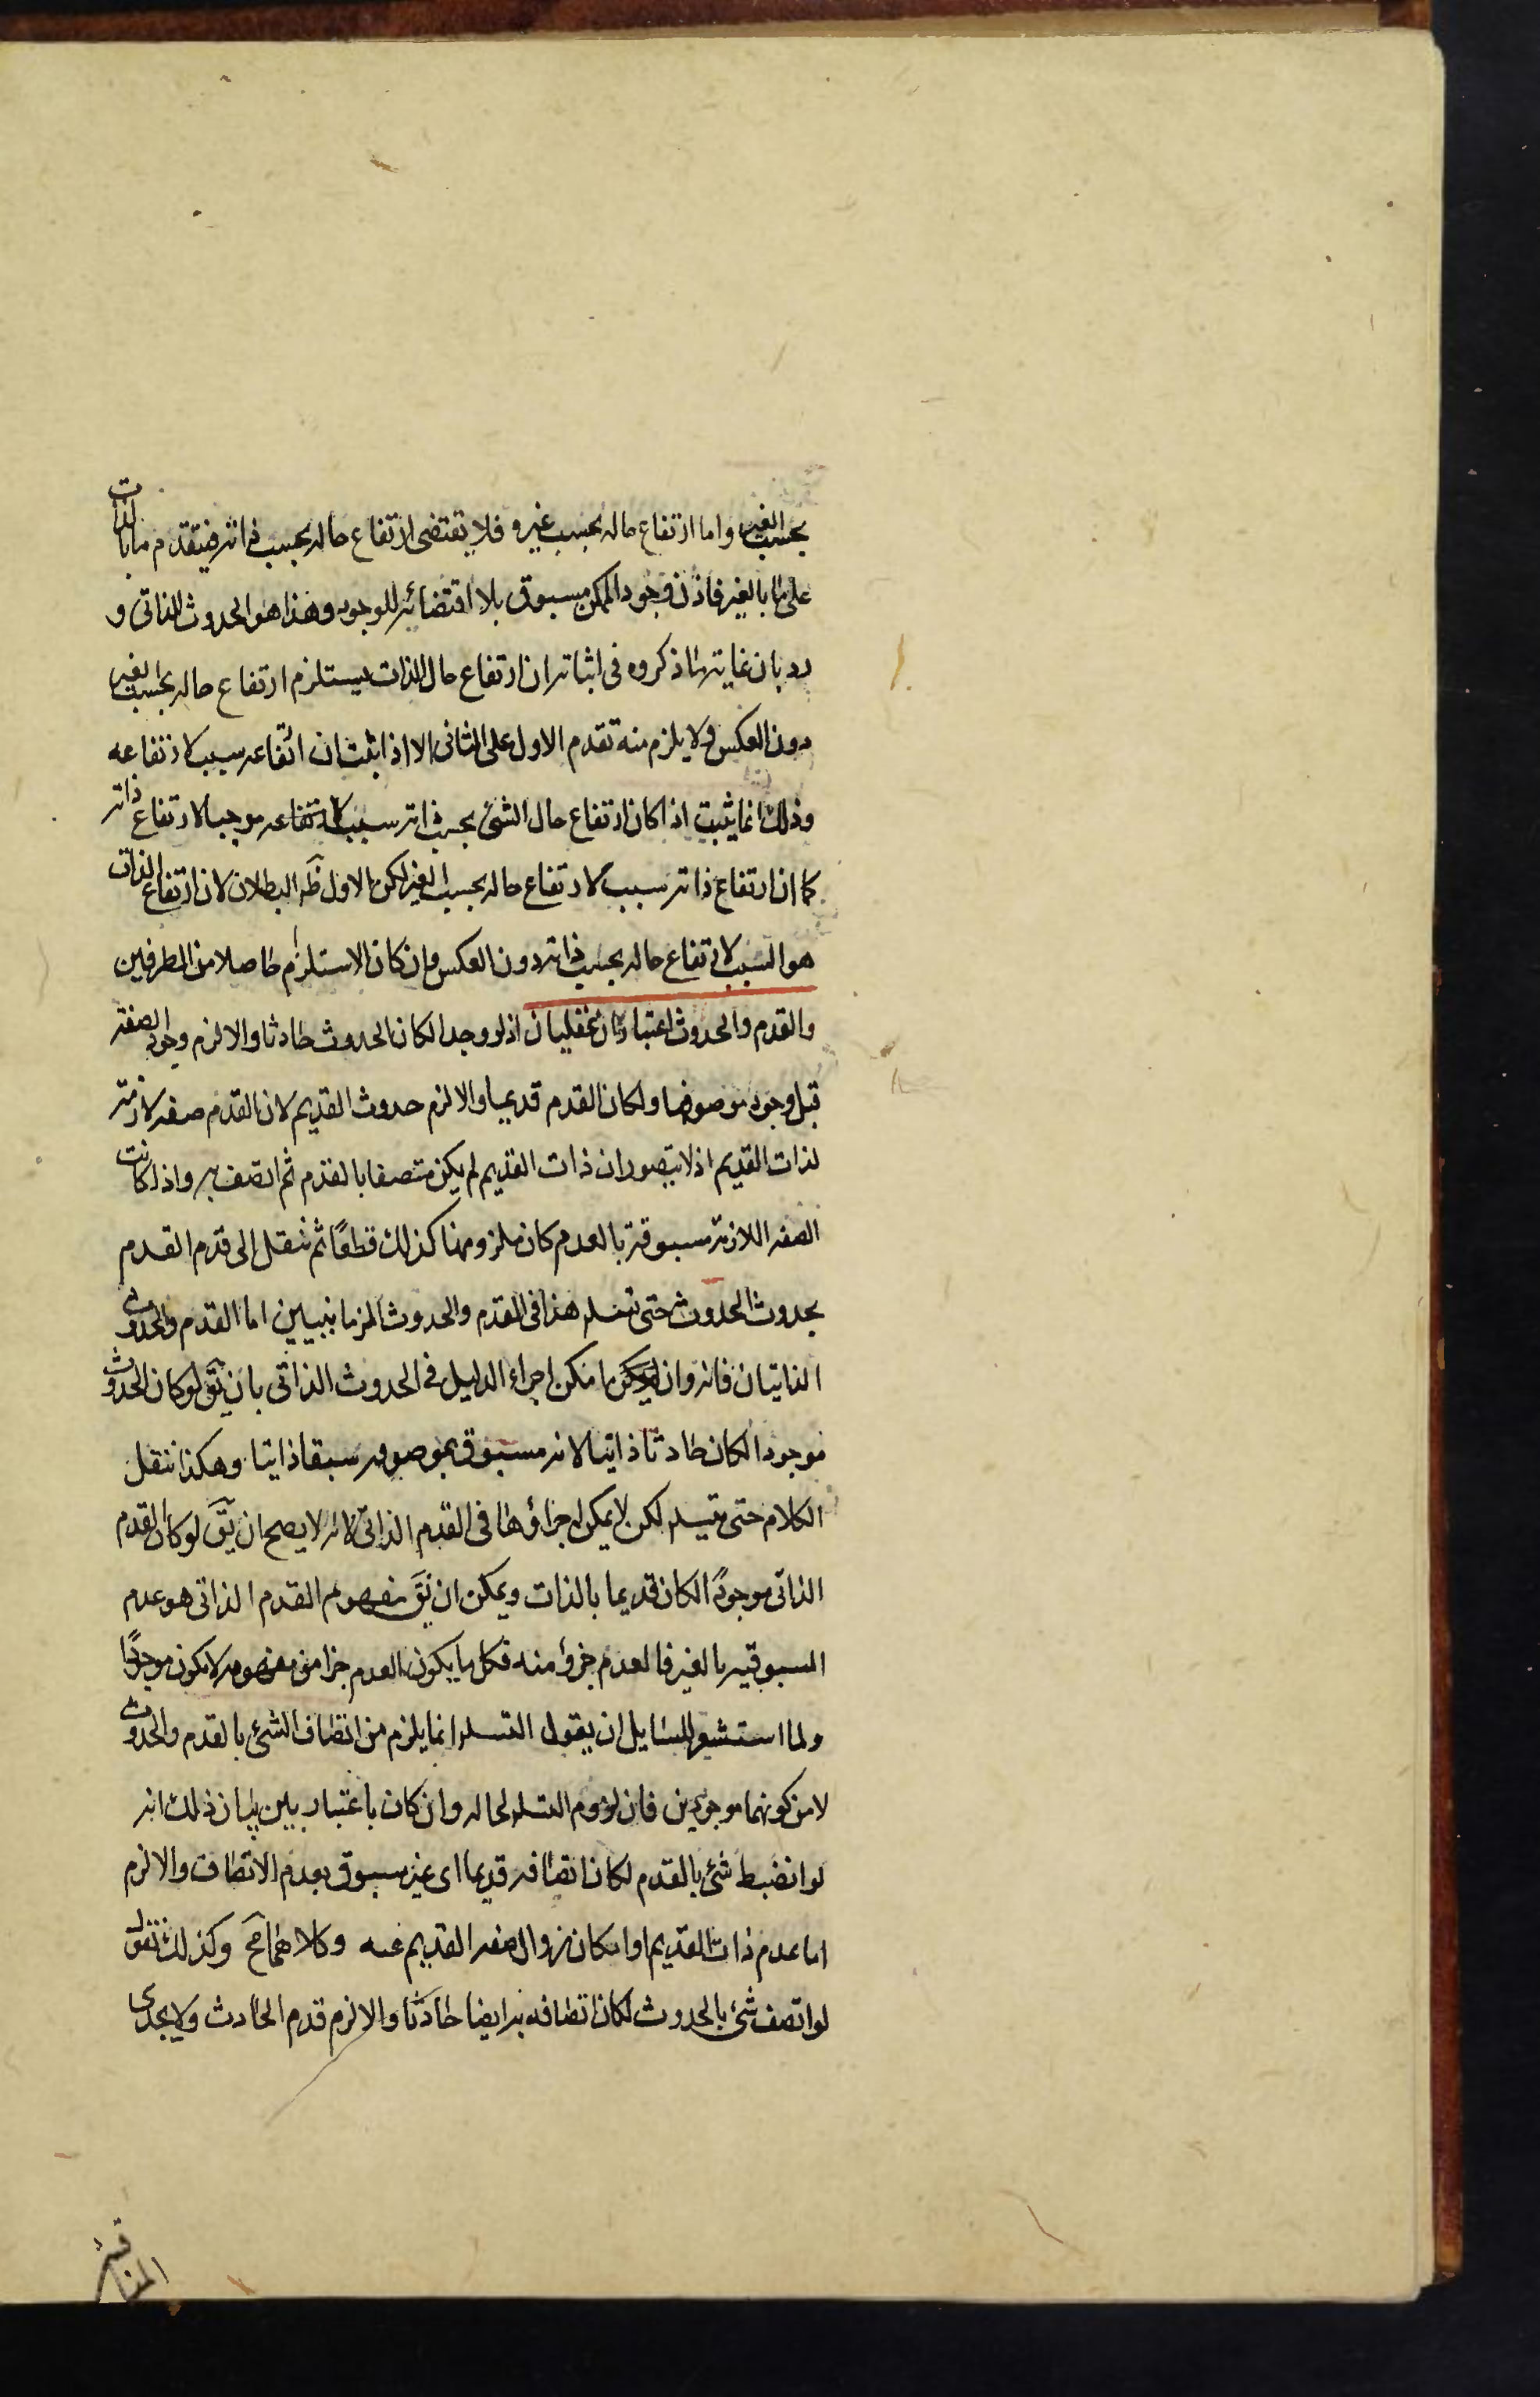 بحسب الغير واما ارتفاع حاله بحسب غيره فلا يقتضى ارتفاع حاله بحسب ذاته فيتقدم ما بالذات
على ما بالغير فاذن وجود الممكن مسبوق بلا اقتضائه للوجود وهذا هو الحدوث الذاتى و
رد بان غاية ما ذكروه فى اثباته ان ارتفاع حال الذات يستلزم ارتفاع حاله بحسب الغير
دون العكس ولا يلزم منه تقدم الاول على الثانى الا اذا ثبت ان ارتفاعه سبب لارتفاعه
وذلك انما يثبت اذا كان ارتفاع حال الشئ بحسب ذاته سببا لارتفاعه موجبا لارتفاع ذاته
كما ان ارتفاع ذاته سبب لارتفاع حاله بحسب الغير لكن الاول ظه البطلان لان ارتفاع الذات
هو السبب لارتفاع حاله بحسب ذاته دون العكس وان كان الاستلزام حاصلا من الطرفين
والقدم والحدوث اعتباران عقليان اذ لو وجدا لكان الحدوث حادثا والا لزم وجود الصفة
قبل وجود موصوفها ولكان القدم قديما والا لزم حدوث القديم لان القدم صفه لازمة
لذات القديم اذ لا يتصور ان ذات القديم لم يكن متصفا بالقدم ثم اتصف به واذا كانت
الصفه اللازمة مسبوقة بالعدم كان ملزومها كذلك قطعًا ثم ننقل الى قدم القدم
بحدوث الحدوث حتى تتسلم هذا فى القدم والحدوث الزمانيين اما القدم والحدوث
الذاتيان فانه وان امكن اجراء الدليل فى الحدوث الذاتى بان يق لو كان الحدوث
موجودا لكان حادثا ذاتيا لانه مسبوق بموصوفه سبقا ذاتيا وهكذا ننقل
الكلام حتى يتسلم لكن لا يمكن اجراؤها فى القدم الذاتى لانه لا يصح ان يق لو كان القدم
الذاتى موجودًا لكان قديما بالذات ويمكن ان يق مفهوم القدم الذاتى هو عدم
المسبوقيه بالغير فالعدم جزؤ منه فكل ما يكون العدم جزا من مفهومه لا يكون موجودًا
ولما استشعر لسايل ان يقول التسلم انما يلزم من اتصاف الشئ بالقدم والحدوث
لا من كونهما موجودين فان لزوم التسلم لحاله وان كان باعتبار بين بيان ذلك انه
لو انضبط شئ بالقدم لكان اتصافه قديما اى غير مسبوق بعدم الاتصاف والا لزم
اما عدم ذات القديم او امكان زوال صفه القديم عنه وكلاهما مح وكذلك نقول
لو اتصف شئ بالحدوث لكان اتصافه به ايضا حادثا والا لزم قدم الحادث ولا يجدى